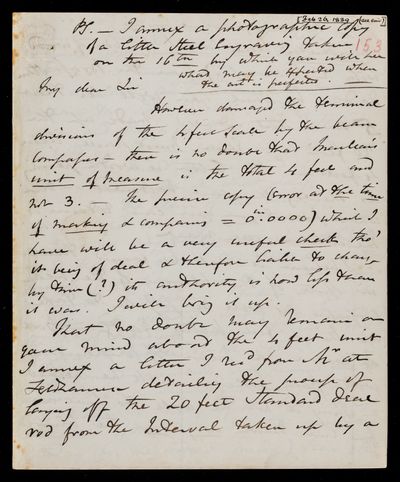 [Feb 20, 1839] [see env.]
PS. — I annex a photographic copy
153
of a little Steel Engraving taken
on the 16th by which you will see
what may be expected when
the art is perfected.
My dear Sir
However damaged the terminal
divisions of the 4 feet Scale by the beam
compasses — there is no doubt that
unit of measure is the total 4 feet and
not 3. — The precise copy (error at the time
of marking & comparing = 0.in0000) which I
have will be a very useful check tho'
its being of deal & therefore liable to change
by time (?) its authority is now less than
it was. I will bring it up.
That no doubt may remain on
your mind about the 4 feet unit
I annex a letter I recd from Mr at
Feldhausen detailing the process of
laying off the 20 feet Standard deal
rod from the Interval taken up by a